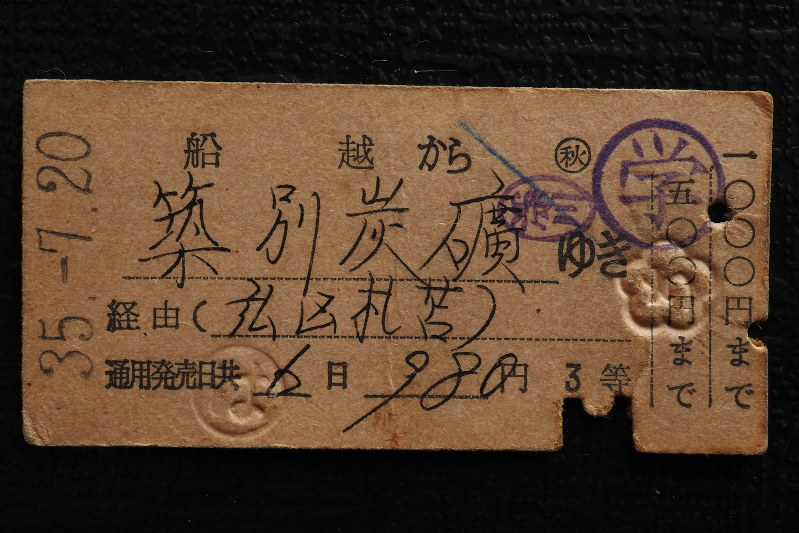 35.-7.20
船越から ㊙秋
築別炭礦ゆき
学
経由(弘函札苫)
通用発売日共 6 日 980 円 3 等
五〇〇円まで
一〇〇〇円まで